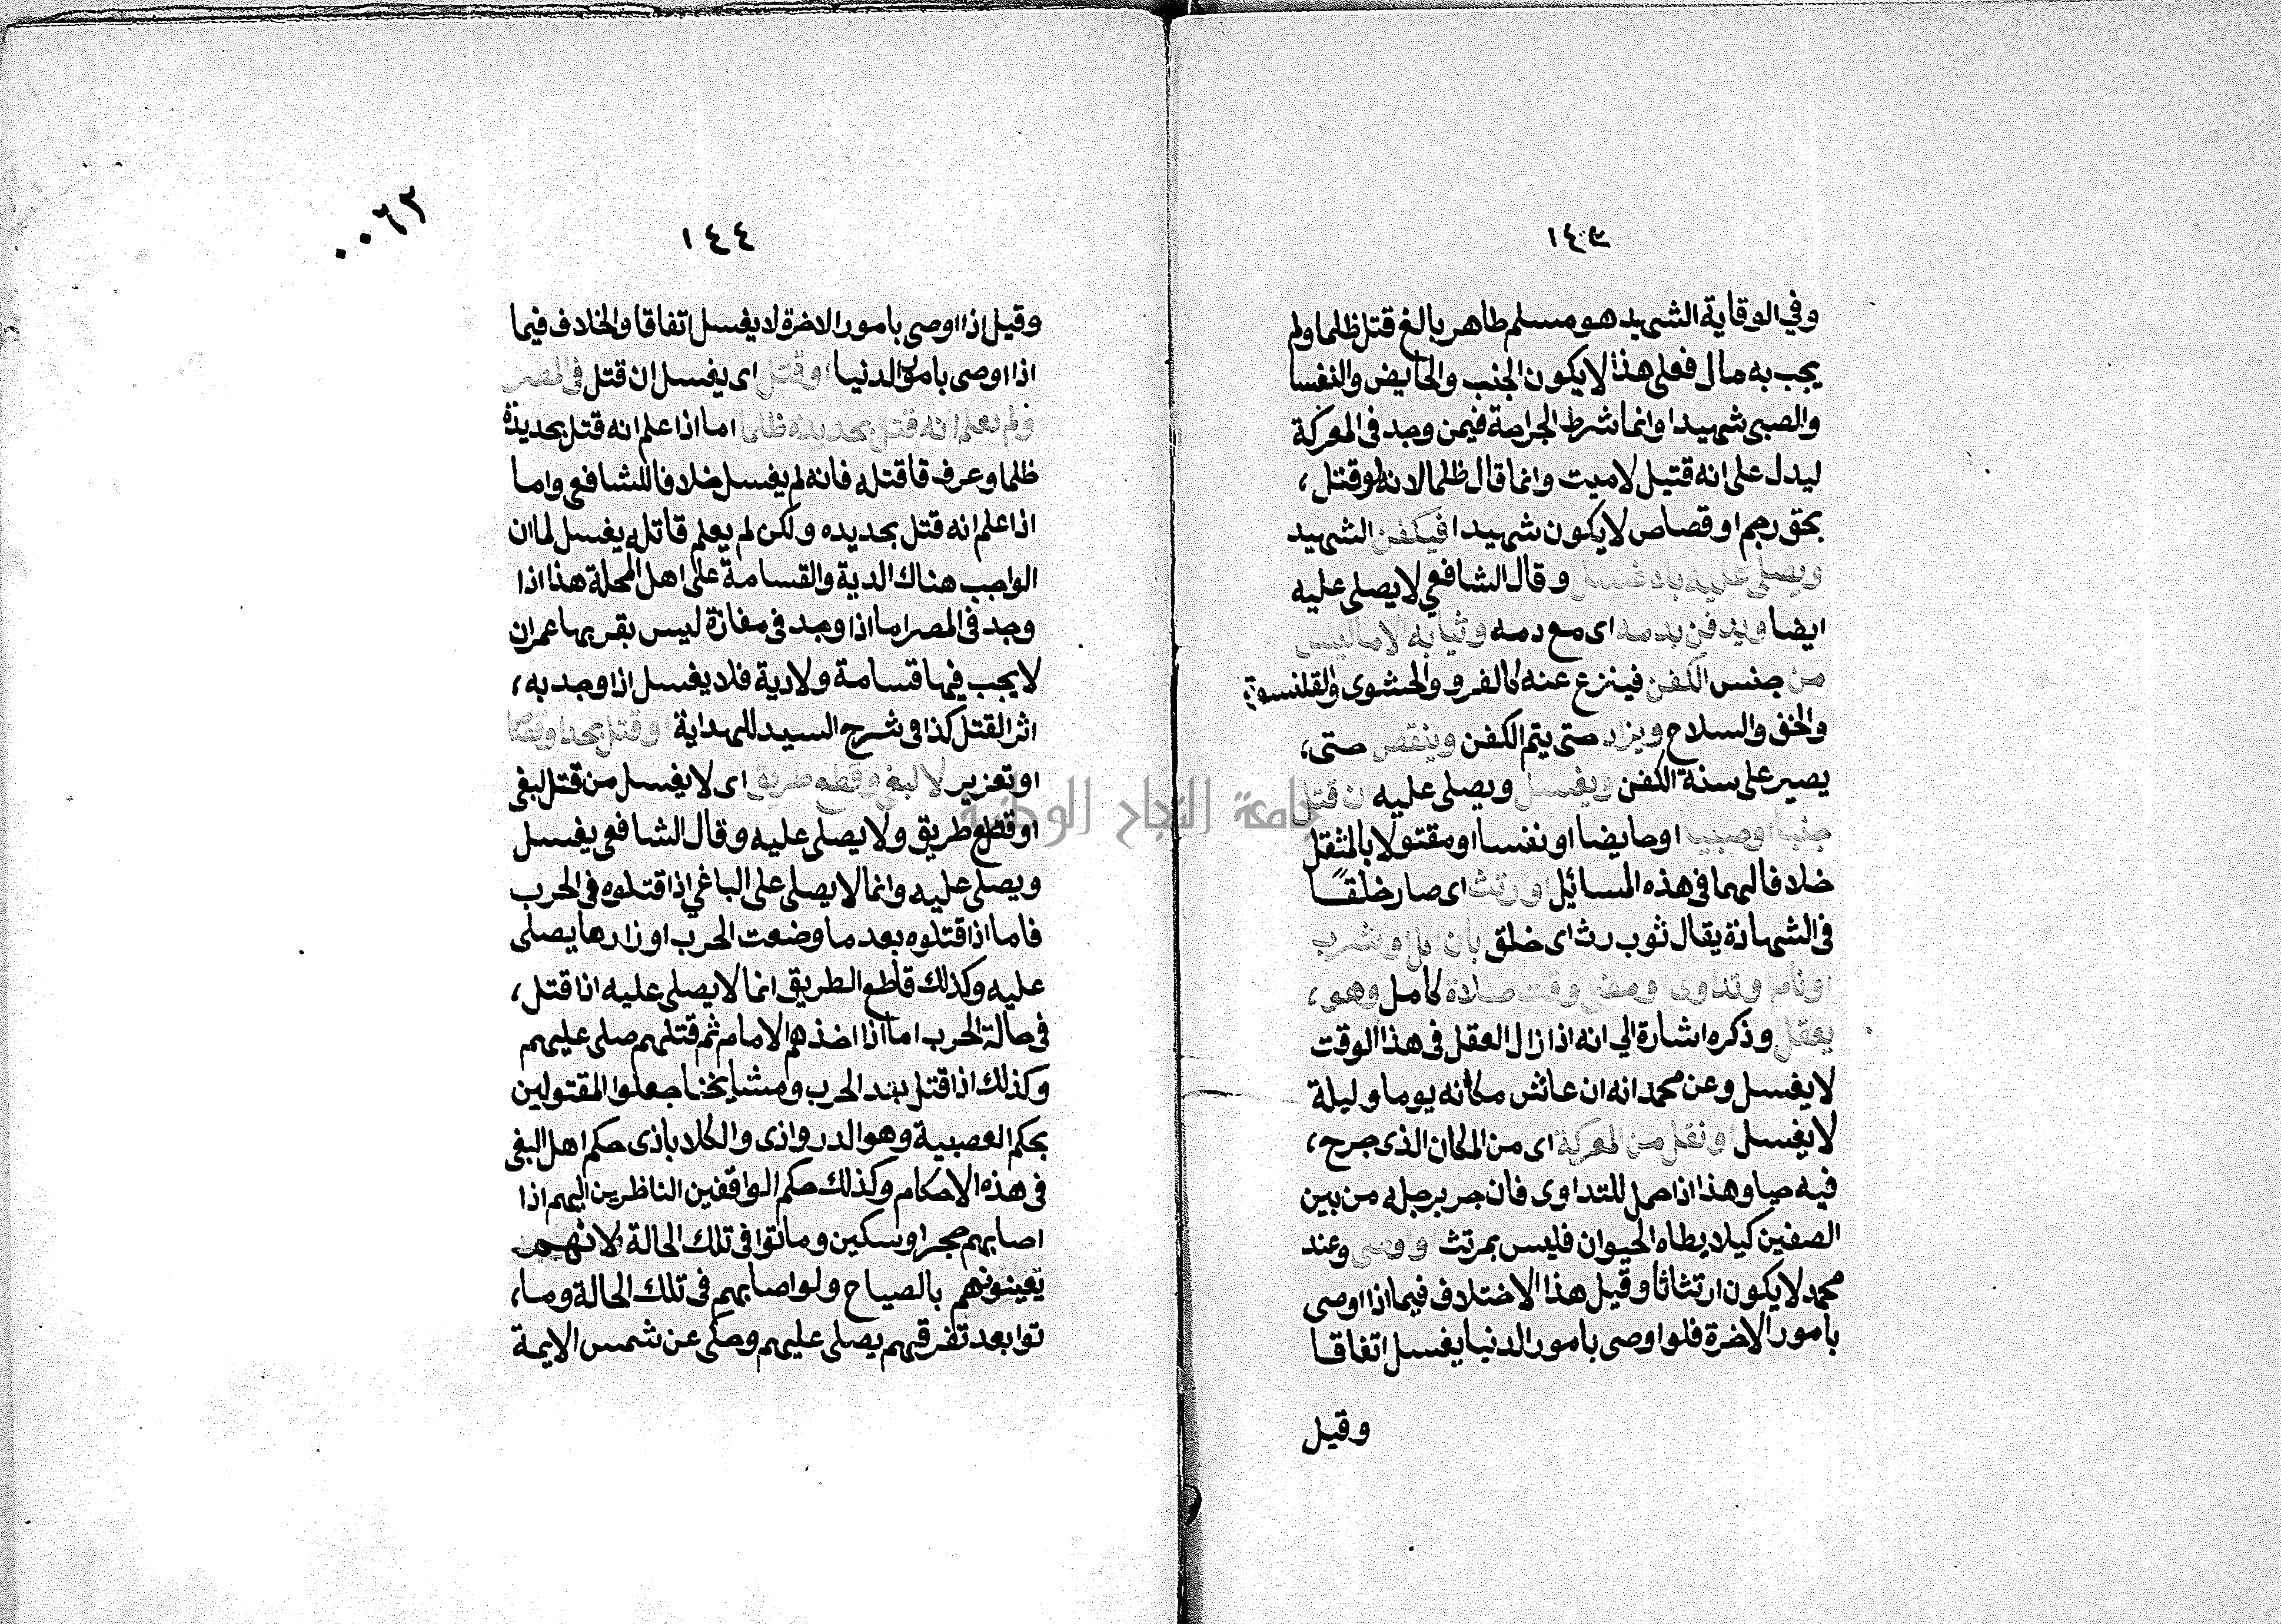 ١٤٣
وفي الوقاية الشهيد هو مسلم طاهر بالغ قتل ظلما ولم
يجب به مال فعلى هذا لا يكون الجنب والحايض والنفسا
والصبى شهيدا وانما شرط الجراحة فيمن وجد فى المعركة
ليدل على انه قتيل لا ميت وانما قال ظلما لانه لو قتل ،
بحق رجم او قصاص لا يكون شهيدا فيكفن الشهيد
ويصلى عليه بلا غسل وقال الشافعي لا يصلى عليه
ايضا ويدفن بدمه اى مع دمه وثيابه الا ما ليس
من جنس الكفن فينزع عنه كالفرو والحشوى والقلنسوة
والخف والسلاح ويزاد حتى يتم الكفن وينقص حتى ،
يصير على سنة الكفن ويغسل ويصلى عليه ان قتل
جنبا او صبيا او حايضا او نفسا او مقتولا بالمثقل
خلافا لهما فى هذه المسائل او ارتث اى صار خلقًا
فى الشهادة يقال ثوب رث اى خلق بان اكل او شرب
او نام او تداوى او مضى وقت صلاة كامل وهو ،
يعقل وذكره اشارة الي انه اذا زال العقل فى هذا الوقت
لا يغسل وعن محمد انه ان عاش مكانه يوما وليلة
لا يغسل او نقل من المعركة اى من المكان الذى جرح ،
فيه حيا وهذا اذا حمل للتداوى فان جر برجله من بين
الصفين كيلا يطاه الحيوان فليس بمرتث واوصى وعند
محمد لا يكون ارتثاثا وقيل هذا الاختلاف فيما اذا اوصى
بامور الاخرة فلو اوصى بامور الدنيا يغسل اتفاقا
وقيل
٠٠٦٢
١٤٤
وقيل اذا اوصى بامور الاخرة لا يغسل اتفاقا والخلاف فيما
اذا اوصى بامور الدنيا او قتل اى يغسل ان قتل فى المصر
ولم يعلم انه قتل بحديدة ظلما اما اذا علم انه قتل بحديدة
ظلما وعرف قاقتله فانه لم يغسل خلافا للشافعى واما
اذا علم انه قتل بحديده ولكن لم يعلم قاتله يغسل لما ان
الواجب هناك الدية والقسامة على اهل المحلة هذا اذا
وجد فى المصر اما اذا وجد فى مفازة ليس بقربها عمران
لا يجب فيها قسامة ولا دية فلا يغسل اذا وجد به ،
اثر القتل كذا فى شرح السيد للهداية او قتل بحد او قصاص
او تعزير لا لبغي وقطع طريق اى لا يغسل من قتل لبغى
او قطع طريق ولا يصلى عليه وقال الشافعى يغسل
ويصلى عليه وانما لا يصلى على الباغي اذا قتلوه فى الحرب
فاما اذا قتلوه بعد ما وضعت الحرب اوزارها يصلى
عليه وكذلك قاطع الطريق انما لا يصلى عليه اذا قتل ،
فى حالة الحرب اما اذا اخذهم الامام ثم قتلهم صلى عليهم
وكذلك اذا قتل بعد الحرب ومشايخنا جعلوا المقتولين
بحكم العصبية وهو الدروازى والكلاباذى حكم اهل البغى
فى هذه الاحكام وكذلك حكم الواقفين الناظرين اليهم اذا
اصابهم حجر او سكين وماتوا فى تلك الحالة لانهم
يعينونهم بالصياح ولو اصابهم فى تلك الحالة وما ،
توا بعد تفرقهم يصلى عليهم وحكى عن شمس الايمة
جامعة النجاح الوطنية